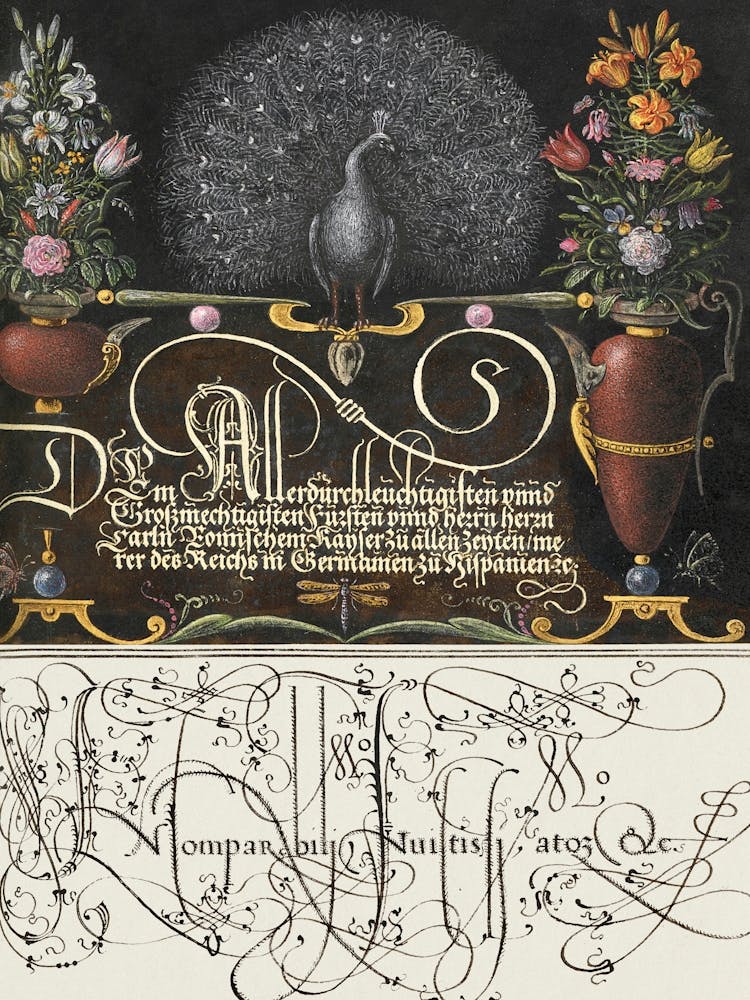 S
Dem Allerdurchleuchtigisten vnnd
Großmechtigisten Fürsten vnnd herrn herrn
Carln Römischem Kayser zů allen Zeyten / me
rer des Reichs in Germanien zů Hispanien ꝛc.
omparabili Nui tissi atoz &c.